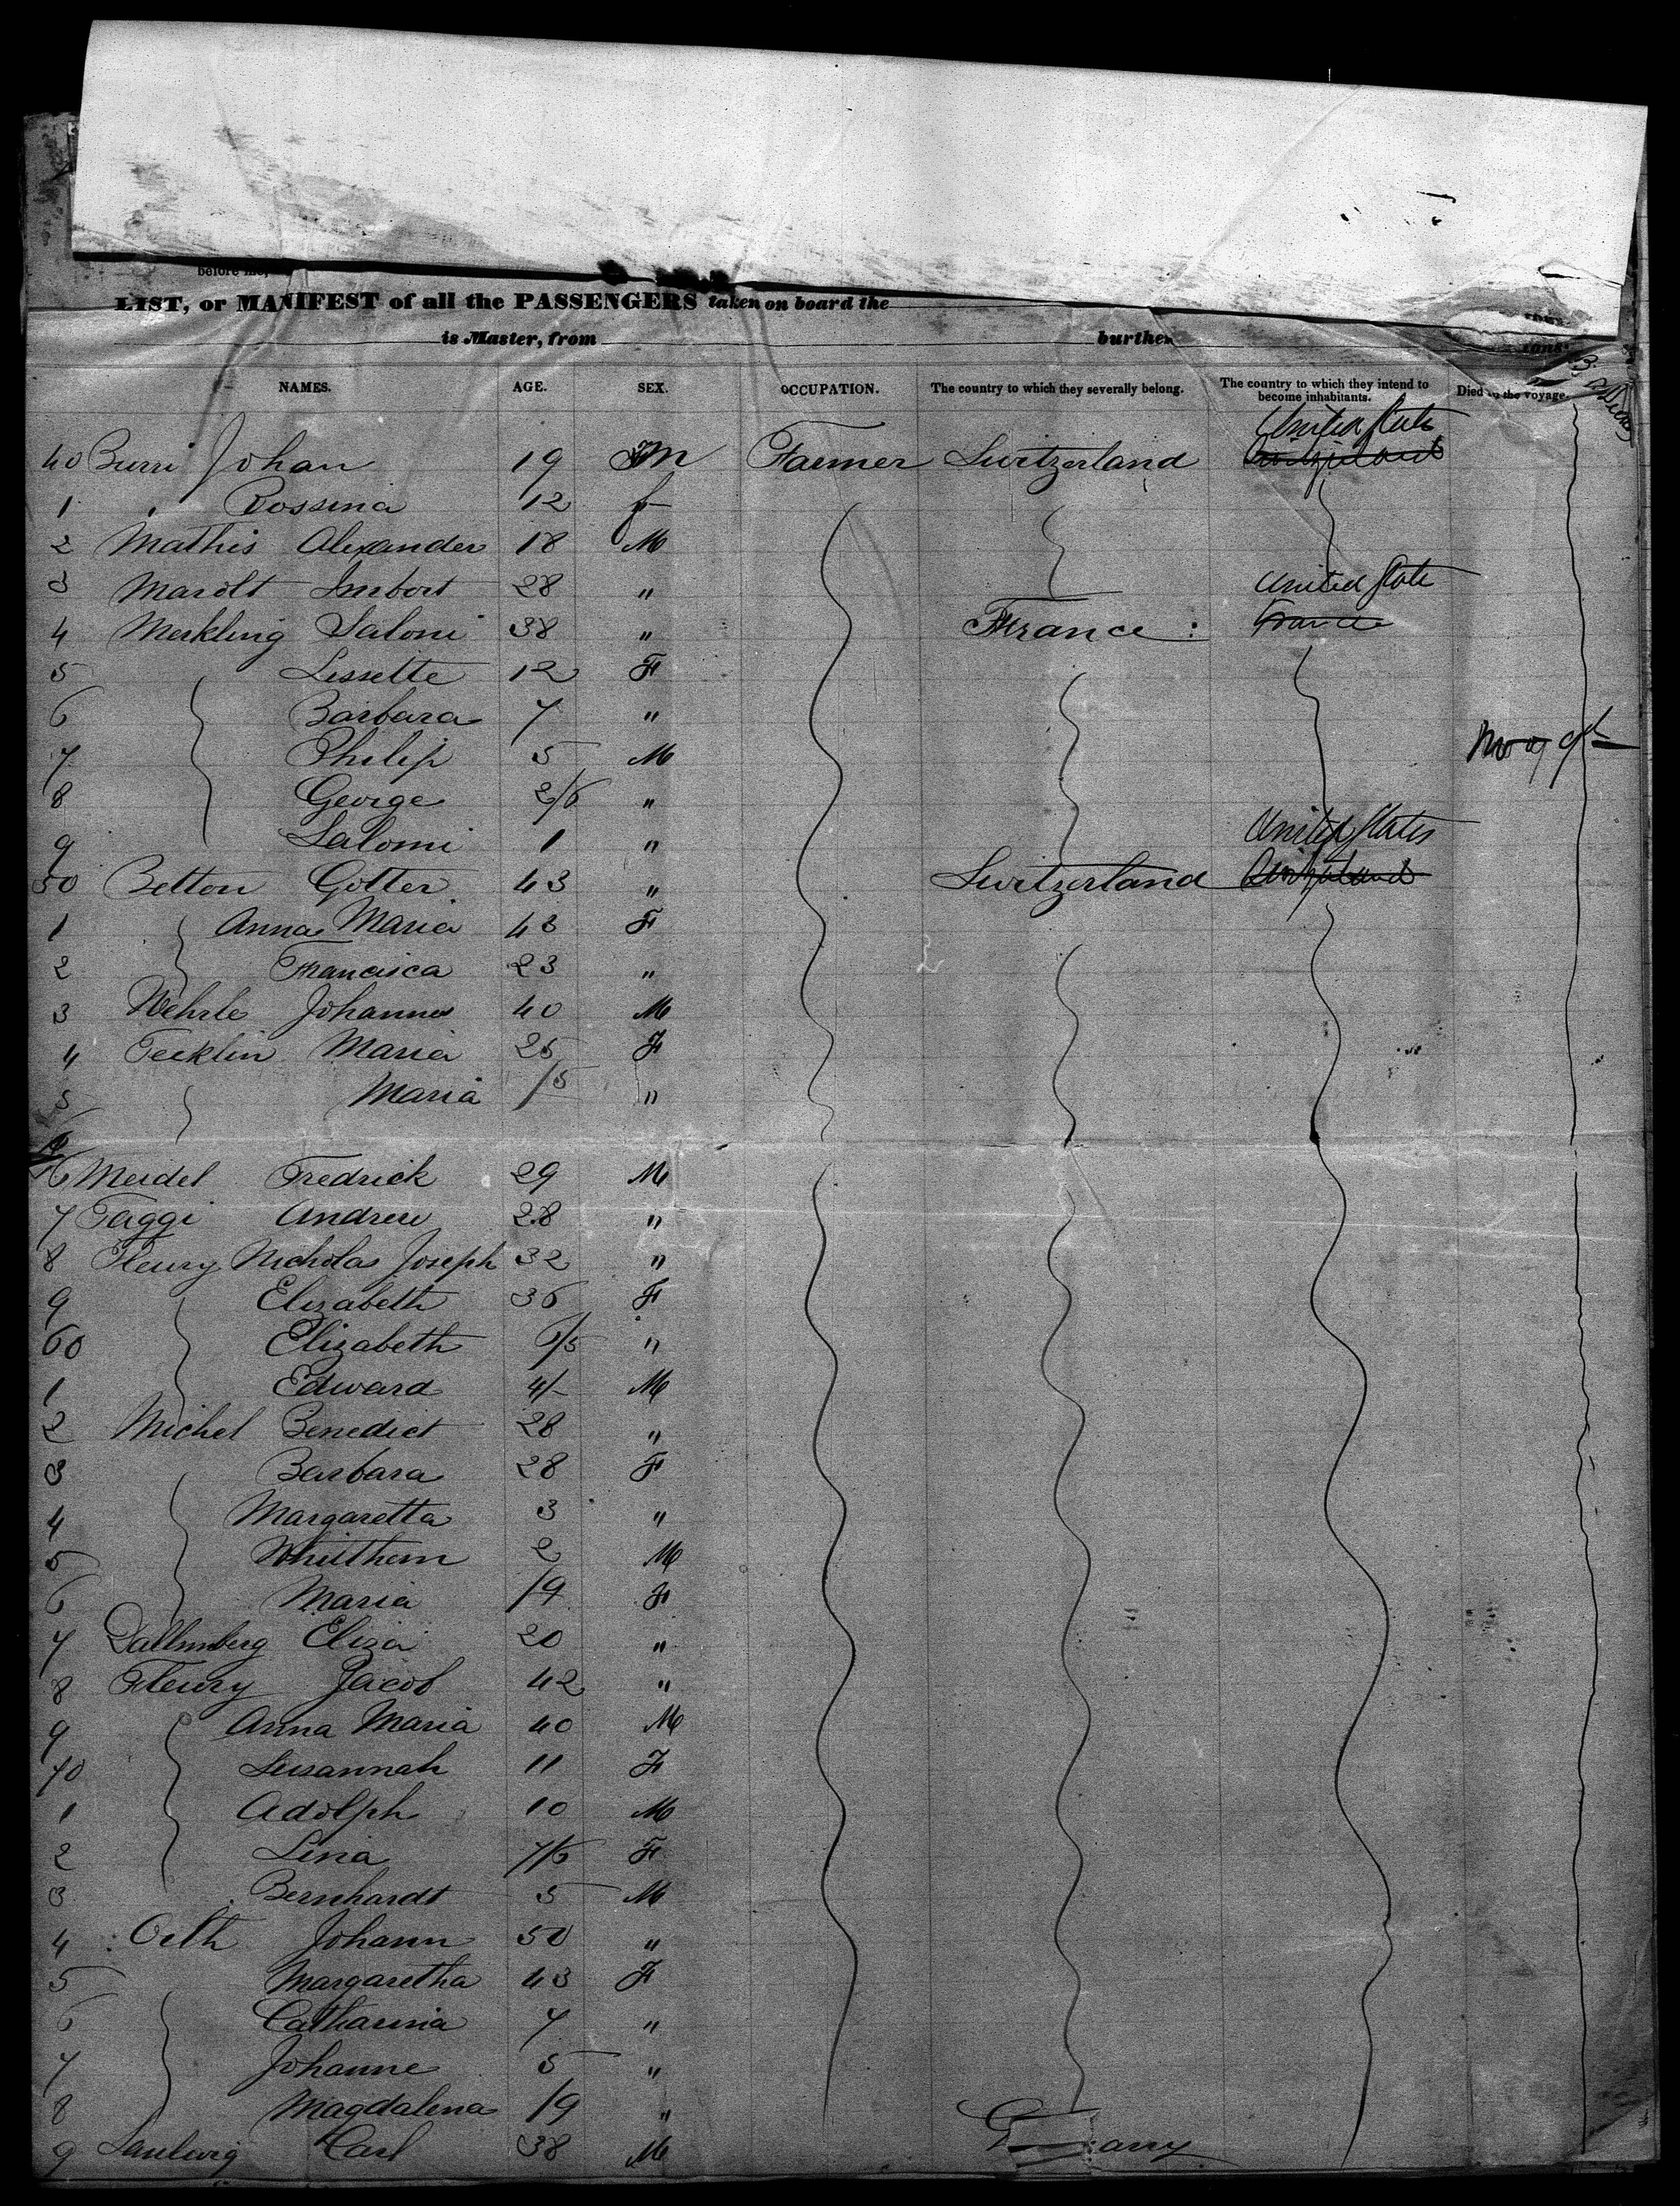 before me,
LIST, or MANIFEST of all the PASSENGERS taken on board the
is Master, from burthen tons
NAMES. AGE. SEX. OCCUPATION. The country to which they severally belong. The country to which they intend to become inhabitants. Died on the voyage.
United State
40 Burri Johan 19 M Faemer Switzerland Switzerland
1 " Rossina 12 f
2 Mathis Alexander 18 M
3 Marolt Imbert 28 " United State
4 Merkling Saloni 38 " France : France
5 Lissette 12 F
6 Barbara 7 "
7 Philip 5 M
8 George 2/6 "
9 Salomi 1 " United States
50 Betton Gotter 43 " Switzerland Switzerland
1 Anna Maria 43 F
2 Francisca 23 "
3 Wehrle Johannes 40 M
4 Fecklin Maria 25 F
5 Maria /5 "
6 Meidel Fredrick 29 M
7 Faggi Andrew 28 "
8 Fleury Nicholas Joseph 32 "
9 Elizabeth 36 F
60 Elizabeth 6/5 "
1 Edward 4/- M
2 Michel Benedict 28 "
3 Barbara 28 F
4 Margaretta 3 "
5 Whilthem 2 M
6 Maria /9 F
7 Dallmberg Eliza 20 "
8 Fleury Jacob 42 "
9 Anna Maria 40 M
70 Susannah 11 F
1 Adolph 10 M
2 Lina 7/6 F
3 Bernhardt 5 M
4 Oeth Johann 50 "
5 Margaretha 43 F
6 Catharina 7 "
7 Johanne 5 "
8 Magdalena /9 "
9 Carl 38 M